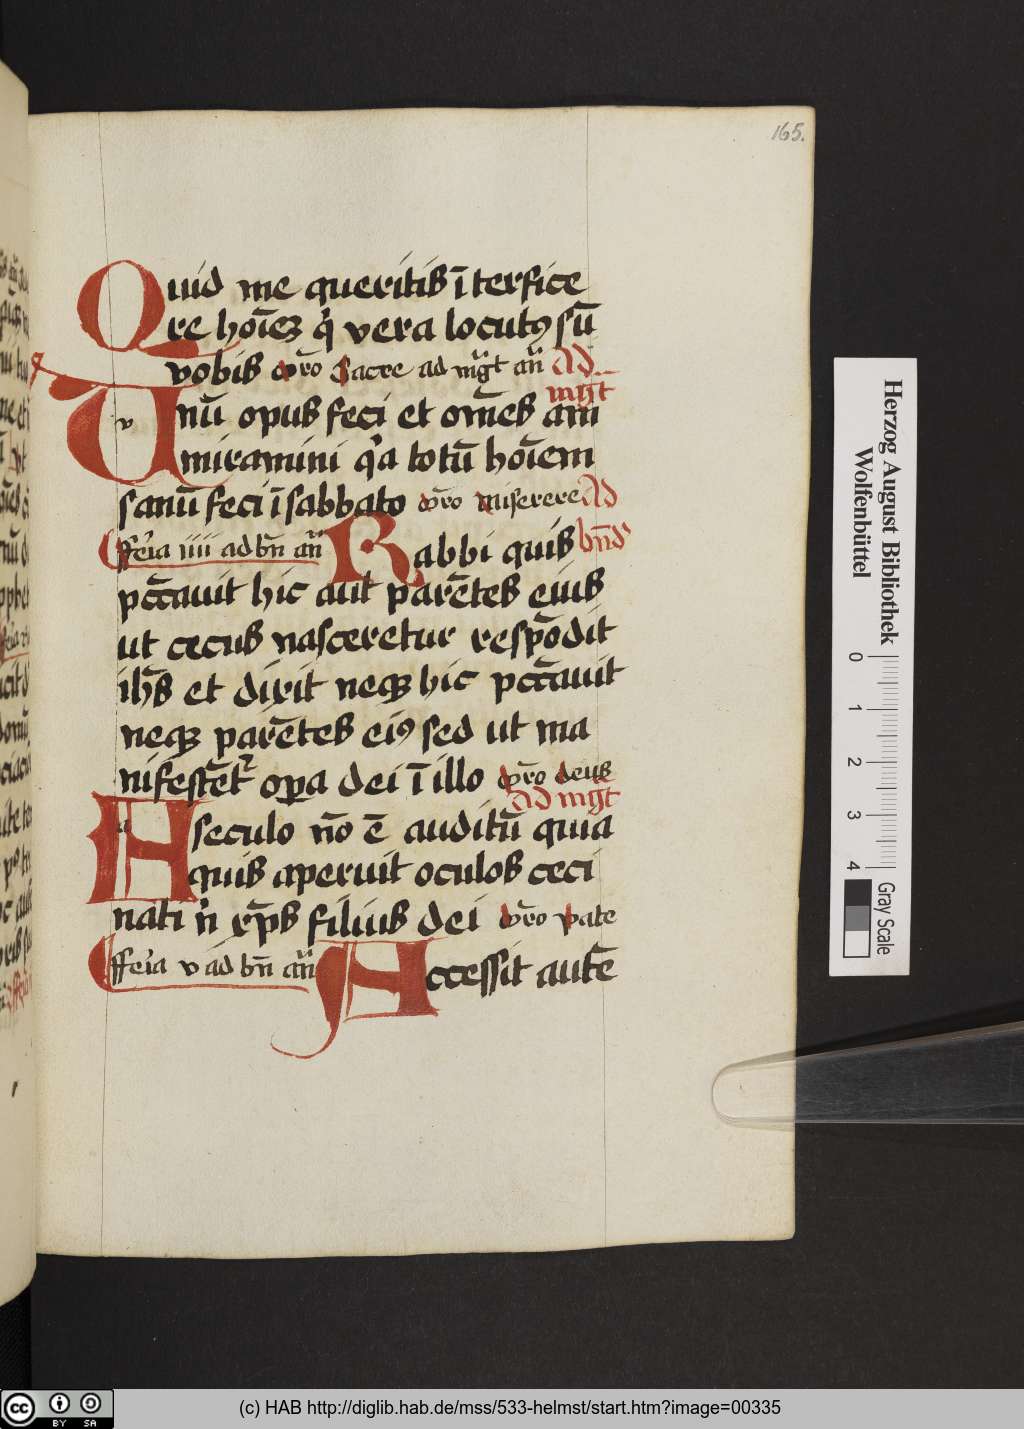 165.
Quid me queritis īterfice
re hoīeꝫ q̇ vera locutꝰ sū
vobis Vr̄o Sacre ad mg̅t an̄ Ad
mg̅t
Vnū opus feci et om̄es am
miramini q̇a totū hoīem
sanū feci ī sabbato vr̄o Miserere Ad
ffe'ia iiii ad bn̄ an̄ Rabbi quis bn̄ds
pcc̄auit hic aut parētes eius
ut cecus nasceretur respōdit
ihs̄ et dixit neqꝫ hic pcc̄auit
neqꝫ parētes eiꝰ sed ut ma
nifestēt᷑ oꝑa dei ī illo vr̄o deus
Ad mg̅t
A seculo nō ē auditū quia
quis aperuit oculos ceci
nati n̄ xp̄s filius dei vr̄o pate
ffe'ia v ad bn̄ an̄ Accessit autē
Herzog August Bibliothek
Wolfenbüttel
0 1 2 3 4
Gray Scale
cc BY SA
(c) HAB http://diglib.hab.de/mss/533-helmst/start.htm?image=00335